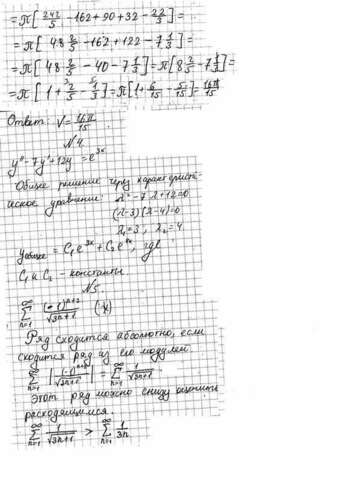 =π[242/5 - 162 + 90 + 32 - 22/3] =
= π[48 2/5 - 162 + 122 - 7 1/3] =
= π[48 2/5 - 40 - 7 1/3] = π[8 2/5 - 7 1/3] =
= π[1 + 2/5 - 1/3] = π[1 + 6/15 - 5/15] = 16π/15
Ответ: V = 16π/15
№4
y'' - 7y' + 12y = e^{3x}
Общее решение через характерист-
ическое уравнение: λ² - 7λ + 12 = 0
(λ-3)(λ-4) = 0
λ₁ = 3, λ₂ = 4
y общее = C₁e^{3x} + C₂e^{4x}, где
C₁ и C₂ - константы
№5
∑_{n=1}^{∞} (-1)^{n+2}/√(3n+1) (*)
Ряд сходится абсолютно, если
сходится ряд из его модулей
∑_{n=1}^{∞} |(-1)^{n+2}/√(3n+1)| = ∑_{n=1}^{∞} 1/√(3n+1)
Этот ряд можно снизу оценить
расходящимся.
∑_{n=1}^{∞} 1/√(3n+1) > ∑_{n=1}^{∞} 1/3n